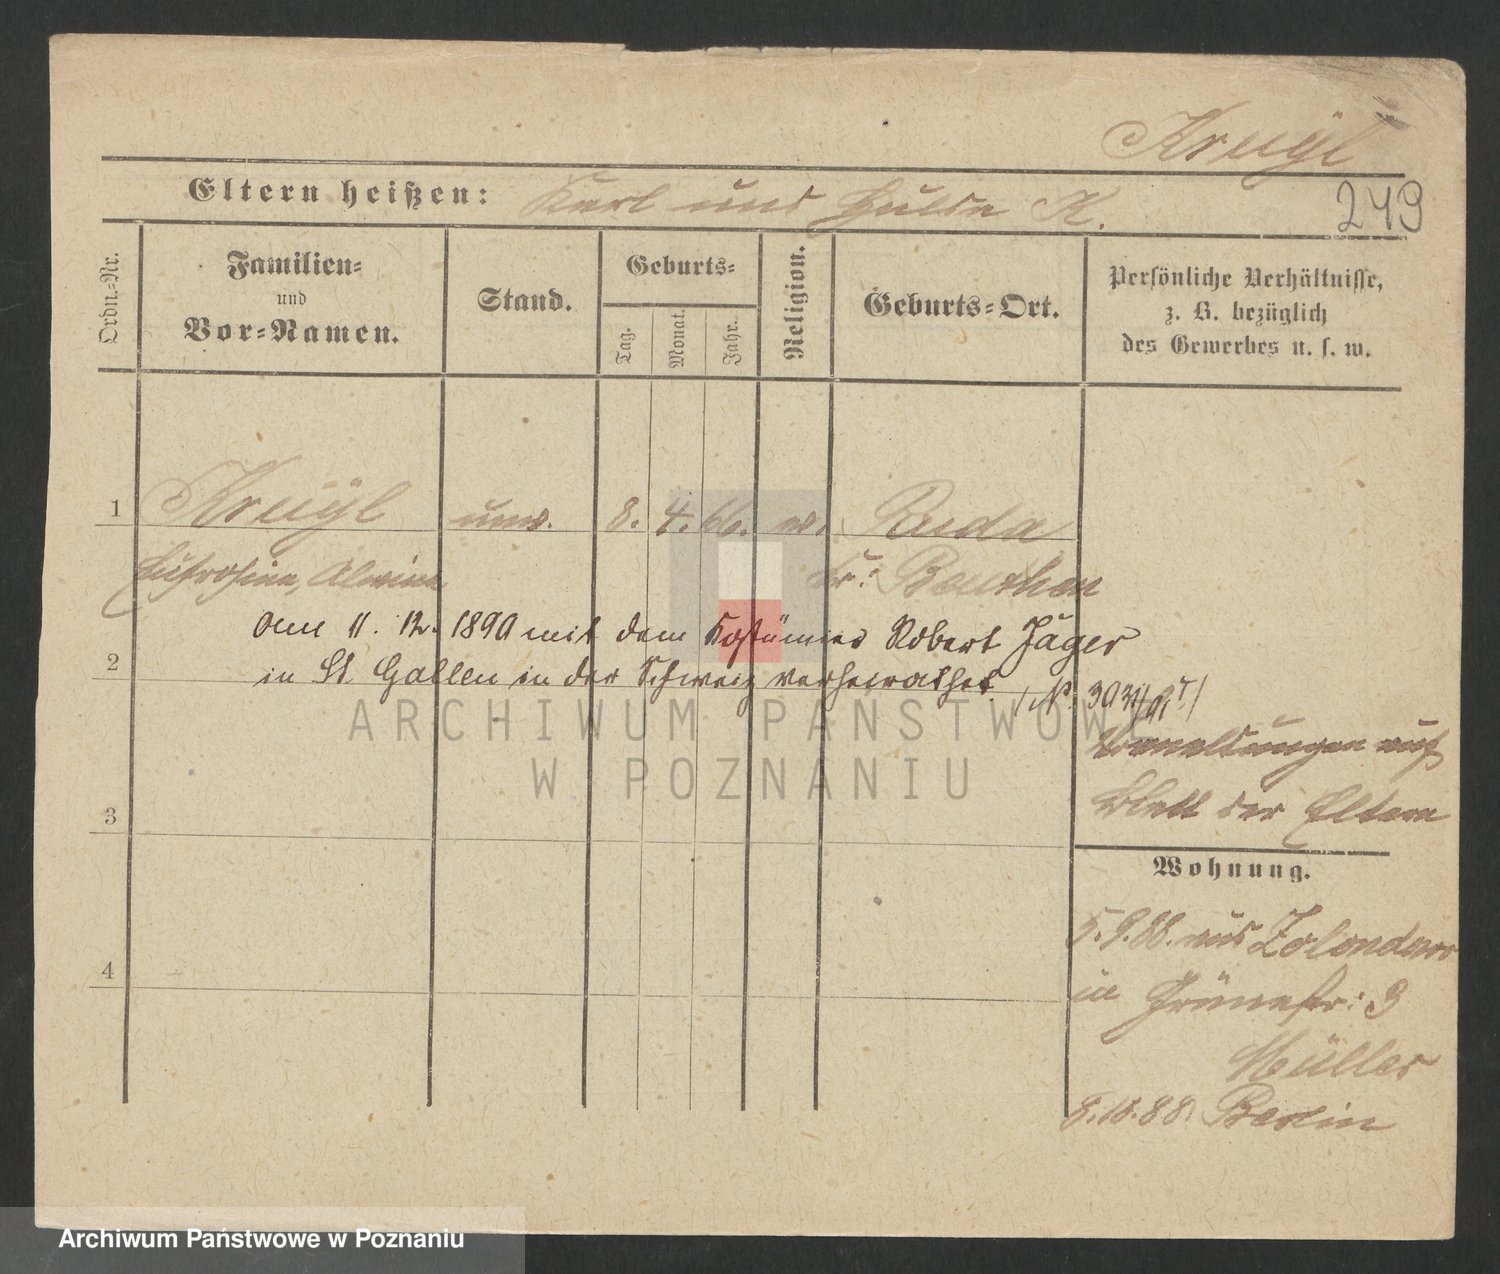 Kreÿl
Eltern heißen: Karl und Hulda K.
249
Ordn.-Nr.
Familien-
und
Vor-Namen.
Stand.
Geburts-
Tag.
Monat.
Jahr.
Religion.
Geburts-Ort.
Persönliche Verhältnisse,
z. B. bezüglich
des Gewerbes u. s. w.
1 Kreÿl unv. 8. 4. 66. ev. Ruda
Eufrosine, Alwine Kr: Beuthen
am 11. 12. 1890 mit dem Robert Jäger
2 in St. Gallen in der Schweiz verheirathet
Vermeldungen auf
Blatt der Eltern
3
Wohnung.
5. 9. 88. aus Zolondowo
4
in Grünestr: 3
Müller
8. 10. 88. Berlin
ARCHIWUM PAŃSTWOWE
W POZNANIU
Archiwum Państwowe w Poznaniu